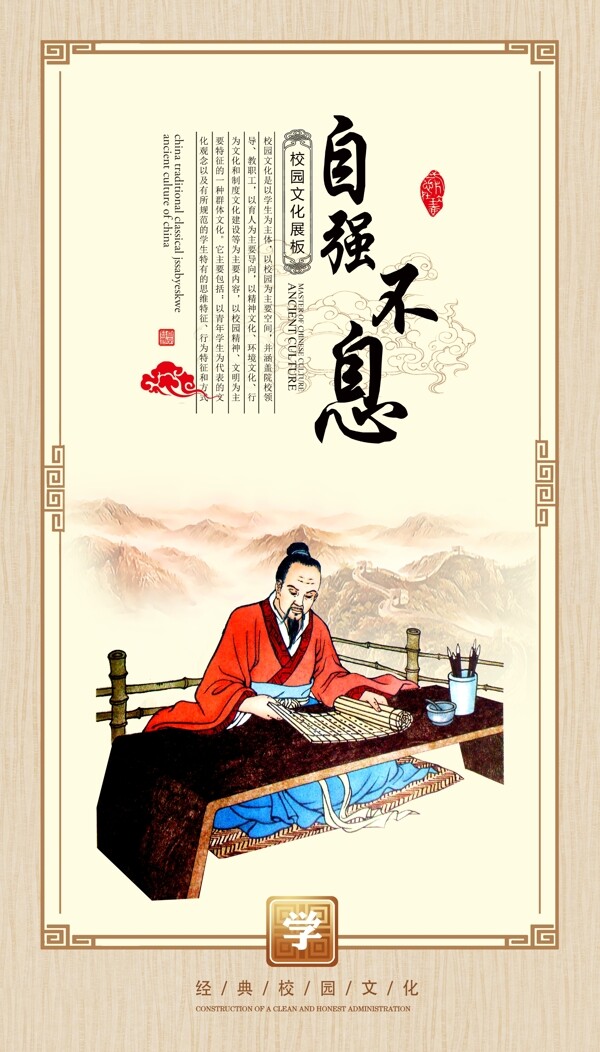 自强不息
校园文化展板
MASTER OF CHINESE CULTURE
ANCIENT CULTURE
校园文化是以学生为主体，以校园为主要空间，并涵盖院校领
导、教职工，以育人为主要导向，以精神文化、环境文化、行
为文化和制度文化建设等为主要内容，以校园精神、文明为主
要特征的一种群体文化。它主要包括：以青年学生为代表的文
化观念以及有所规范的学生特有的思维特征、行为特征和方式
china traditional classical jssabyeskwe
ancient culture of china
学
经/典/校/园/文/化
CONSTRUCTION OF A CLEAN AND HONEST ADMINISTRATION